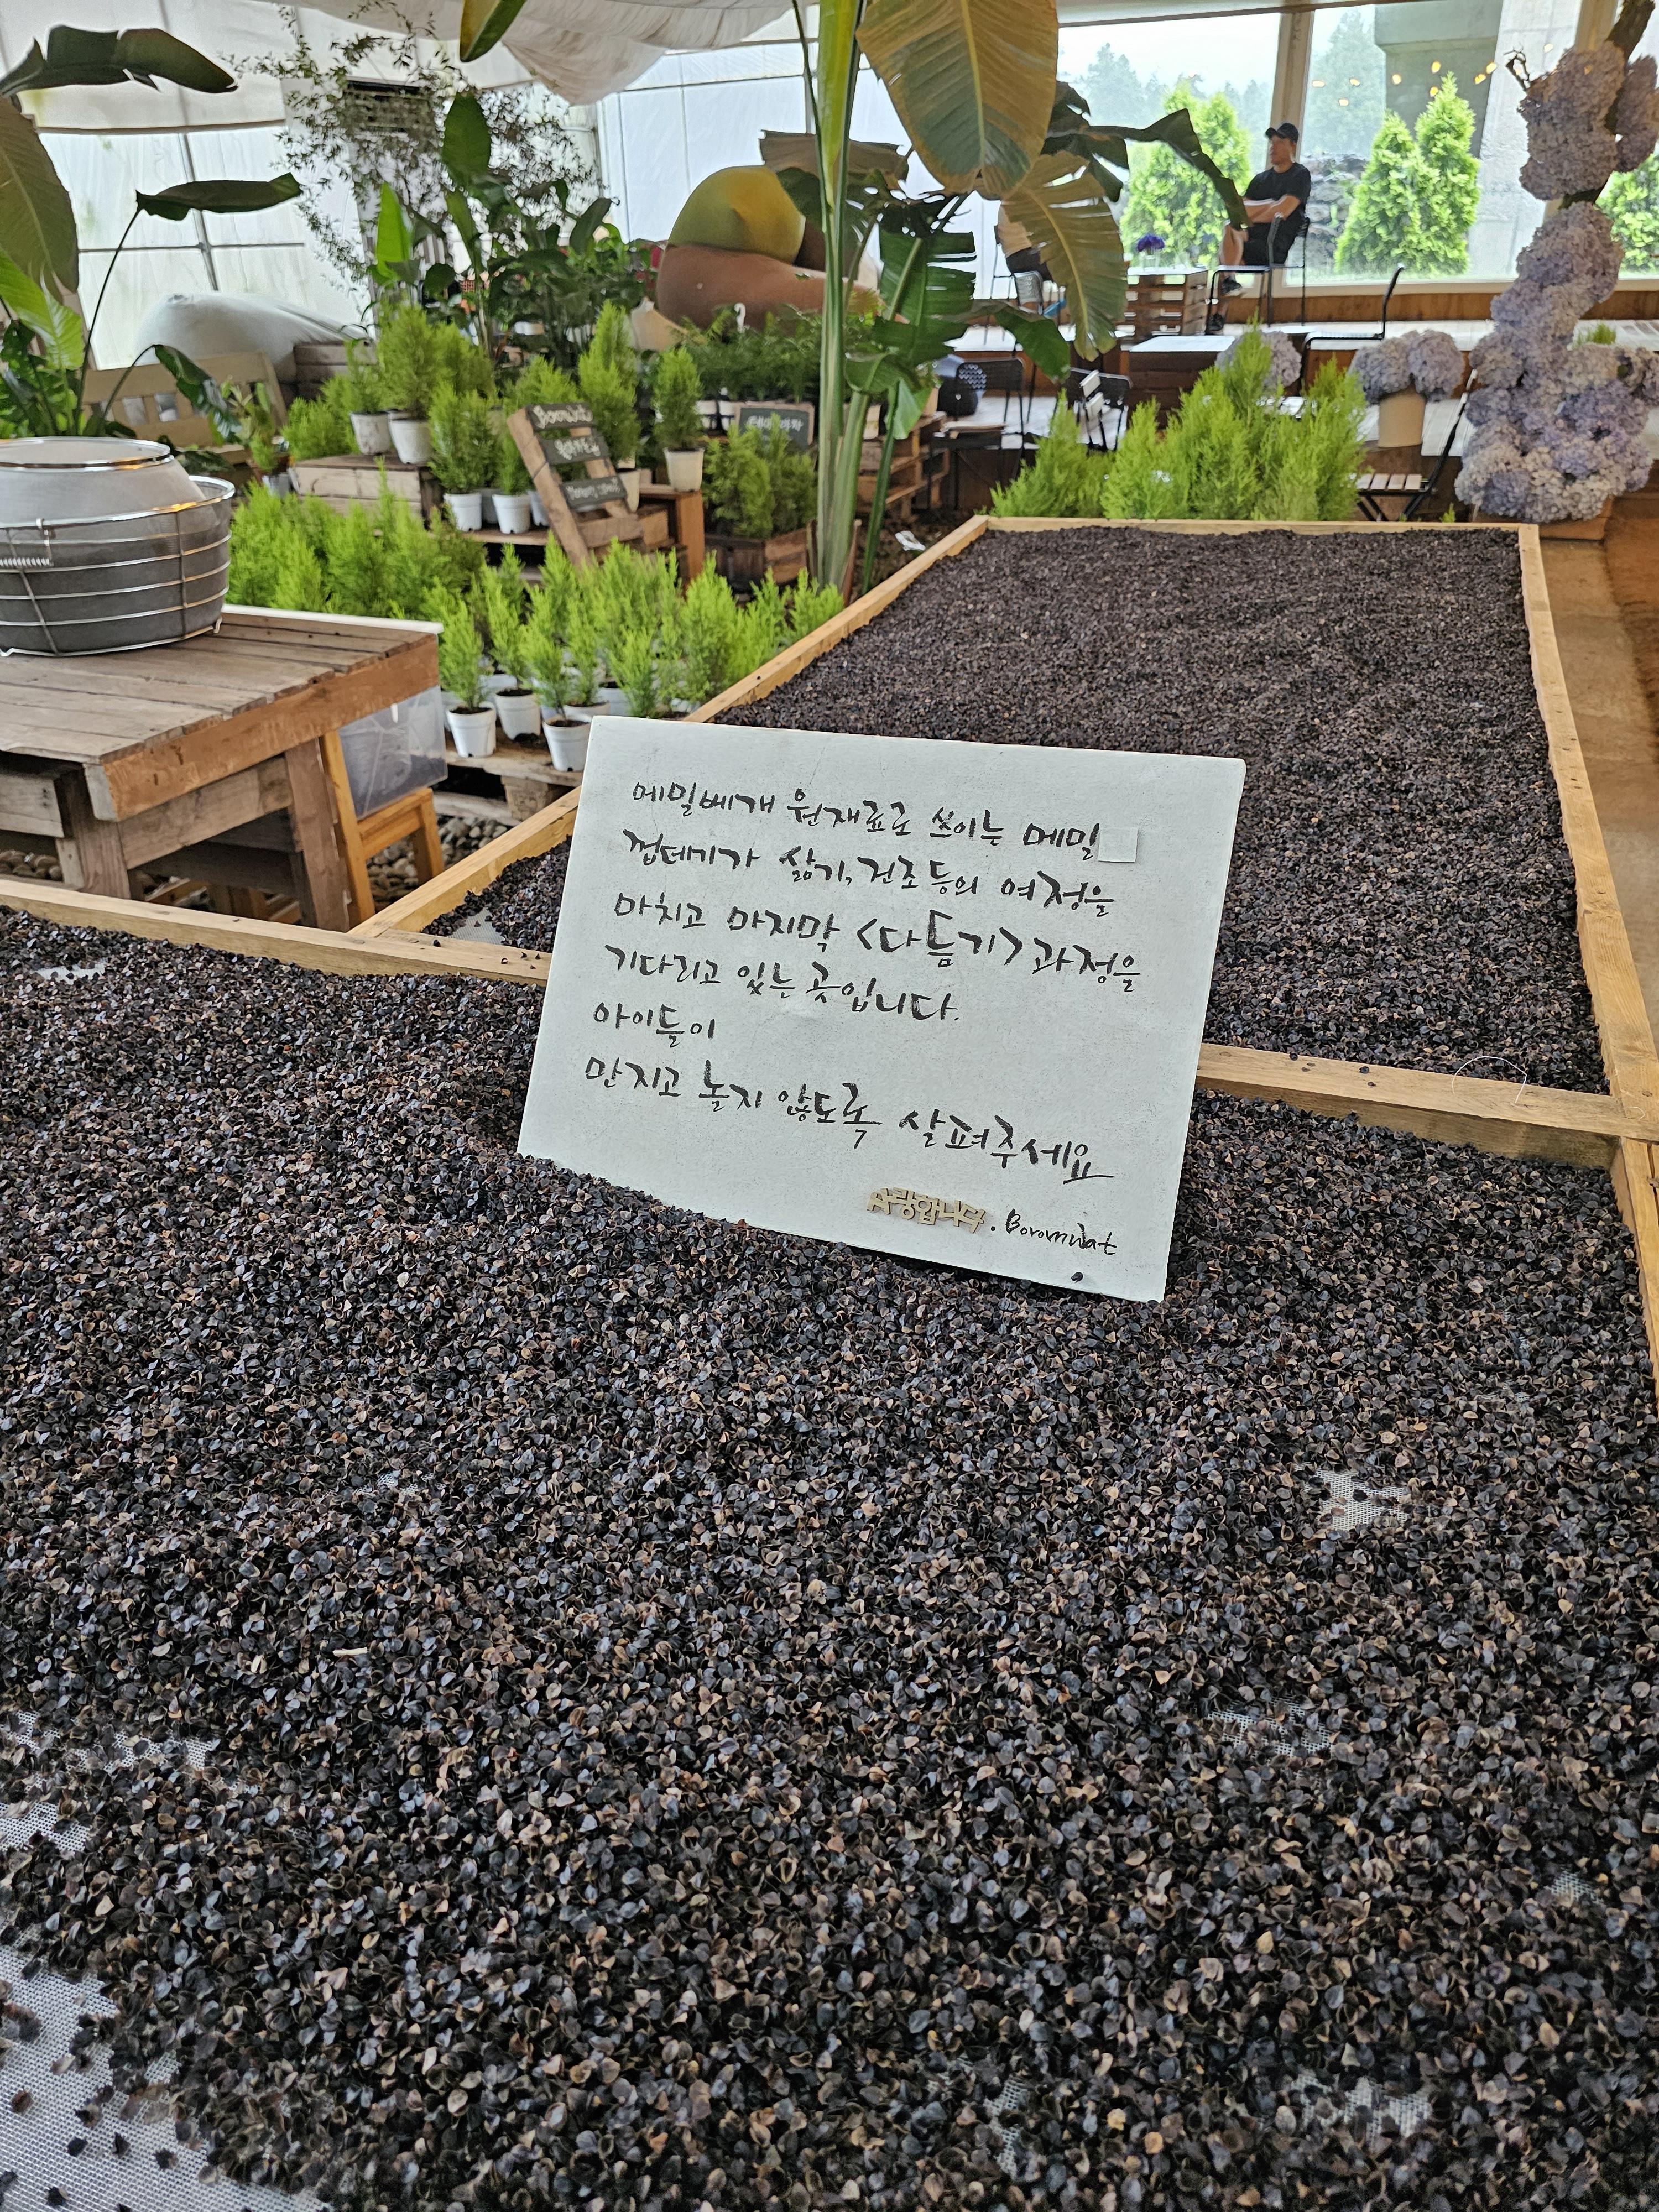 메밀베개 원재료로 쓰이는 메밀
껍데기가 삶기, 건조 등의 여정을
마치고 마지막 <다듬기> 과정을
기다리고 있는 곳입니다.
아이들이
만지고 놀지 않도록 살펴주세요
사랑합니다. Boromwat
Boromwat